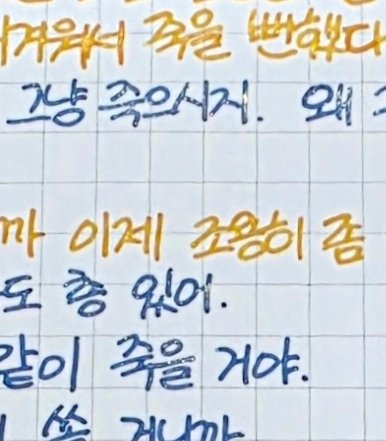 겨워서 죽을 뻔했다
그냥 죽으시지. 왜
까 이제 조용히 좀
도 총 있어.
같이 죽을 거야.
쏠 거니까